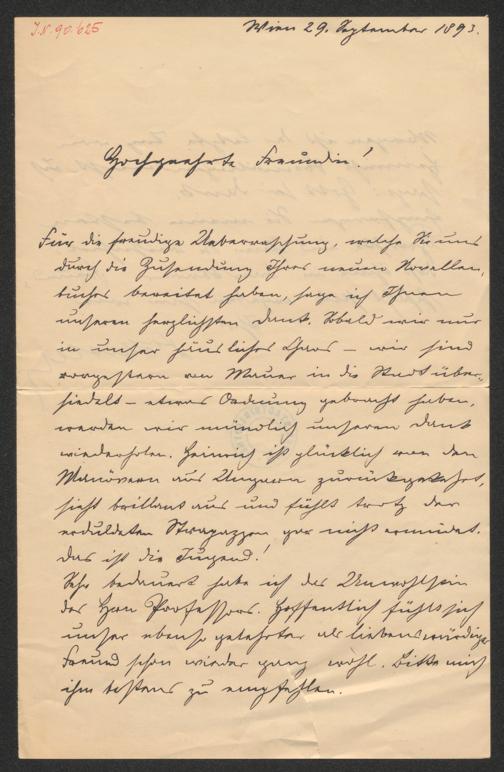 J.N. 90.625
Wien 29. September 1893.
Hochgeehrte Freundin!
Für die freudige Ueberraschung, welche Sie uns
durch die Zusendung Ihres neuen Novellen-
buches bereitet haben, sage ich Ihnen
unseren herzlichsten Dank. Sobald wir nur
in unser häusliches Chaos – wir sind
vorgestern von Mauer in die Stadt über-
siedelt – etwas Ordnung gebracht haben,
werden wir mündlich unseren Dank
wiederholen. Heinrich ist glücklich von den
Manövern aus Ungarn zurückgekehrt,
sieht brillant aus und fühlt trotz der
erduldeten Strapazzen gar nicht ermüdet.
Das ist die Jugend!
Sehr bedauert habe ich das Unwohlsein
des Hrn Professors. Hoffentlich fühlt sich
unser ebenso gelehrter als liebenswürdiger
Freund schon wieder ganz wohl. Bitte mich
ihm bestens zu empfehlen.